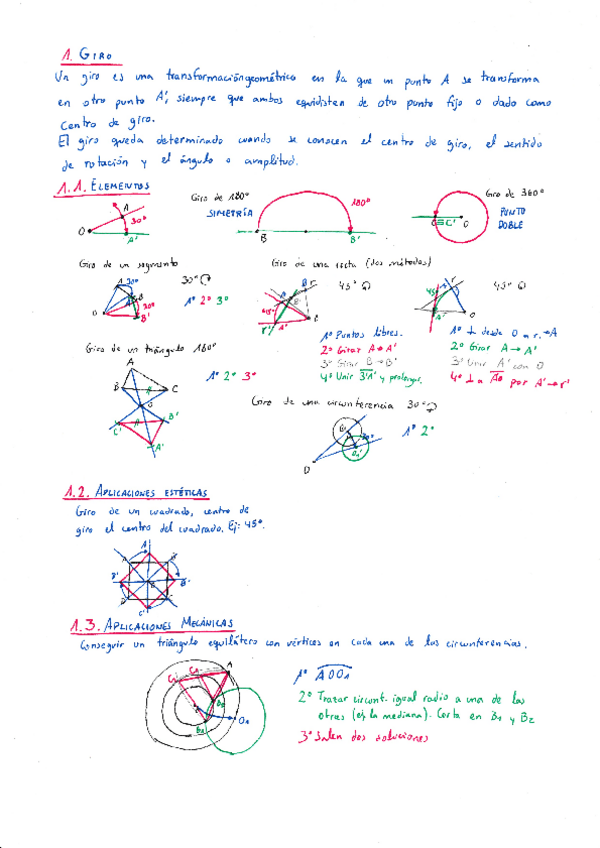 1. GIRO
Un giro es una transformación geométrica en la que un punto A se transforma
en otro punto A', siempre que ambos equidisten de otro punto fijo o dado como
centro de giro.
El giro queda determinado cuando se conocen el centro de giro, el sentido
de rotación y el ángulo o amplitud.
1.1. ELEMENTOS
Giro de 180º
SIMETRÍA
Giro de 360º
PUNTO
DOBLE
O A 30º A'
B 180º B'
C≡C' O
Giro de un segmento
30º
1º 2º 3º
Giro de una recta (dos métodos)
45º
45º
1º Puntos libres.
2º Girar A→A'
3º Girar B→B'
4º Unir B'A' y prolongar.
1º ⊥ desde O a r.→A
2º Girar A→A'
3º Unir A' con O
4º ⊥ a A'O por A'→r'
Giro de un triángulo 180º
1º 2º 3º
A
B C
O
C' B'
A'
Giro de una circunferencia 30º
1º 2º
O
1.2. APLICACIONES ESTÉTICAS
Giro de un cuadrado, centro de
giro el centro del cuadrado. Ej: 45º.
1.3. APLICACIONES MECÁNICAS
Conseguir un triángulo equilátero con vértices en cada una de las circunferencias.
1º AOO1
2º Trazar circunf. igual radio a una de las
otras (ej. la mediana). Corta en B1 y B2
3º Salen dos soluciones